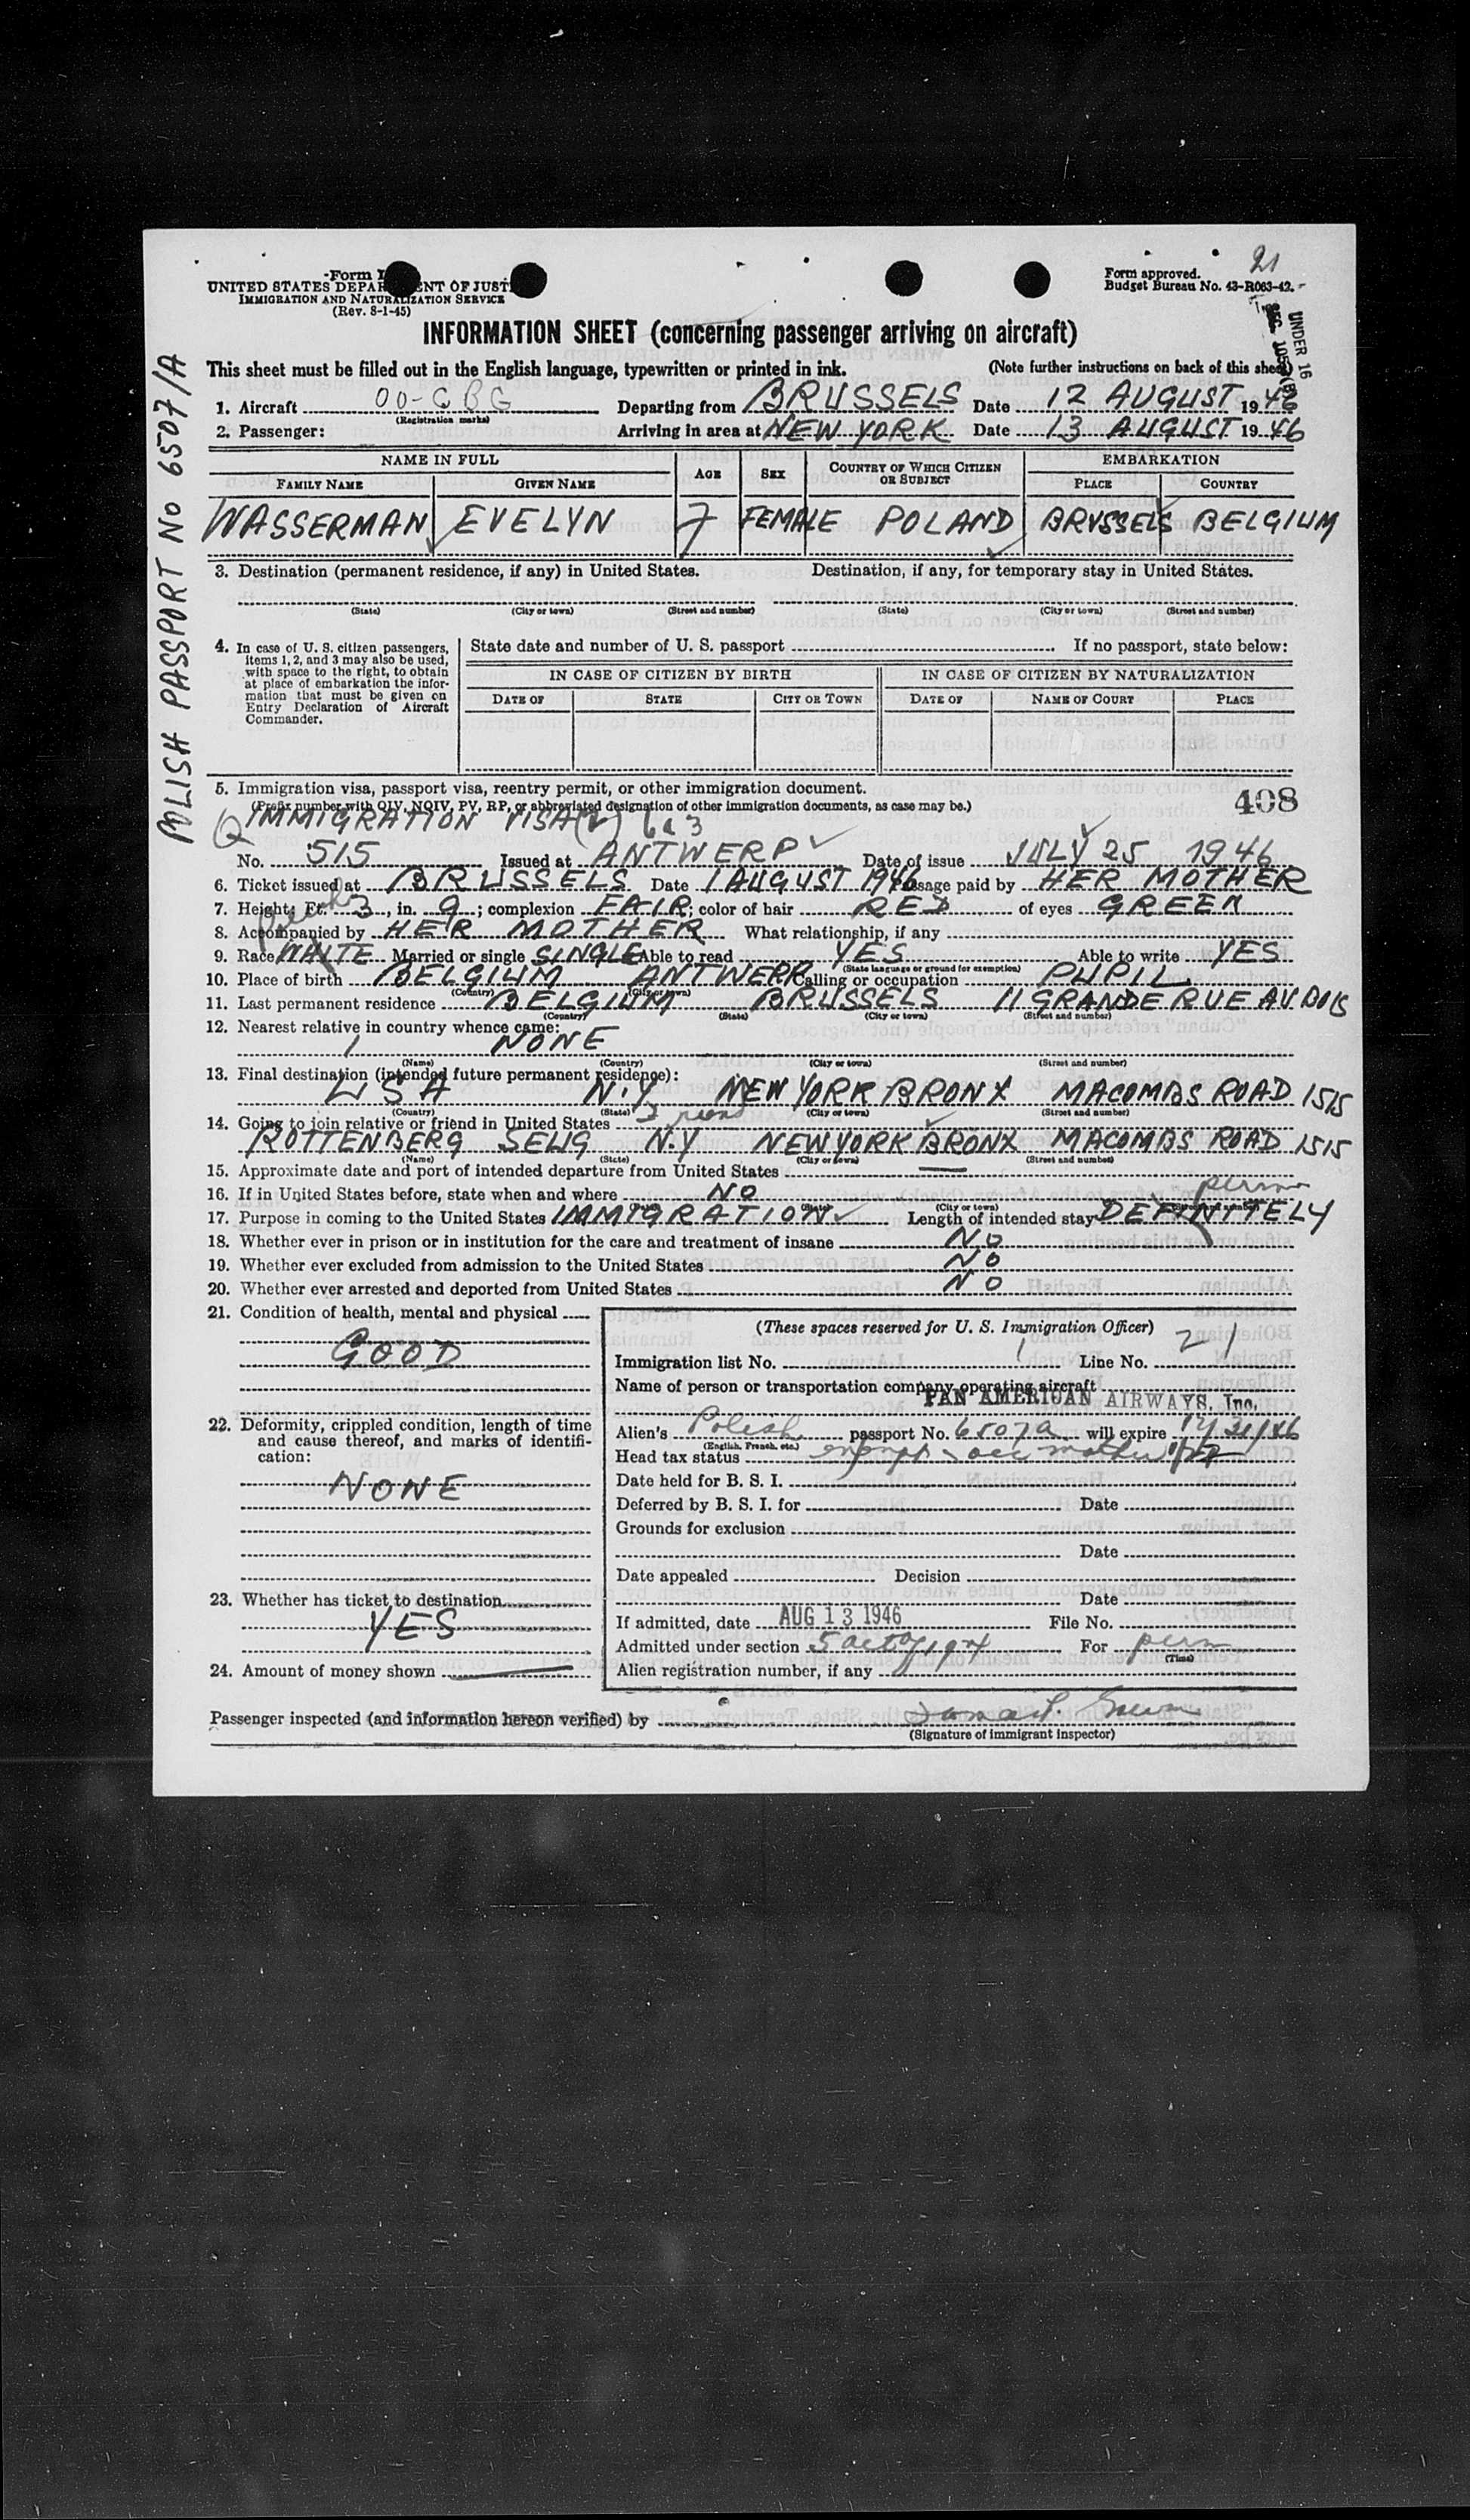 21
Form I
UNITED STATES DEPARTMENT OF JUSTICE
IMMIGRATION AND NATURALIZATION SERVICE
(Rev. 8-1-45)
Form approved.
Budget Bureau No. 43-R063-42.
UNDER 16
SEC. 105
INFORMATION SHEET (concerning passenger arriving on aircraft)
This sheet must be filled out in the English language, typewritten or printed in ink. (Note further instructions on back of this sheet)
POLISH PASSPORT No 6507/A
1. Aircraft OO-CBG Departing from BRUSSELS Date 12 AUGUST 1946
(Registration marks)
2. Passenger: Arriving in area at NEW YORK Date 13 AUGUST 1946
NAME IN FULL AGE SEX COUNTRY OF WHICH CITIZEN OR SUBJECT EMBARKATION
FAMILY NAME GIVEN NAME PLACE COUNTRY
WASSERMAN EVELYN 7 FEMALE POLAND BRUSSELS BELGIUM
3. Destination (permanent residence, if any) in United States. Destination, if any, for temporary stay in United States.
(State) (City or town) (Street and number) (State) (City or town) (Street and number)
4. In case of U. S. citizen passengers, items 1, 2, and 3 may also be used, with space to the right, to obtain at place of embarkation the information that must be given on Entry Declaration of Aircraft Commander.
State date and number of U. S. passport If no passport, state below:
IN CASE OF CITIZEN BY BIRTH IN CASE OF CITIZEN BY NATURALIZATION
DATE OF STATE CITY OR TOWN DATE OF NAME OF COURT PLACE
5. Immigration visa, passport visa, reentry permit, or other immigration document.
(Prefix number with QIV, NQIV, PV, RP, or abbreviated designation of other immigration documents, as case may be.) 408
Q IMMIGRATION VISA 6a3
No. 515 Issued at ANTWERP Date of issue JULY 25 1946
6. Ticket issued at BRUSSELS Date 1 AUGUST 1946 Passage paid by HER MOTHER
7. Height: Ft. 3, in. 9; complexion FAIR; color of hair RED of eyes GREEN
8. Accompanied by HER MOTHER What relationship, if any
9. Race WHITE Married or single SINGLE Able to read YES Able to write YES
(State language or ground for exemption)
10. Place of birth BELGIUM ANTWERP Calling or occupation PUPIL
(Country) (City or town)
11. Last permanent residence BELGIUM BRUSSELS 11 GRANDE RUE AU BOIS
(Country) (State) (City or town) (Street and number)
12. Nearest relative in country whence came:
NONE
(Name) (Country) (City or town) (Street and number)
13. Final destination (intended future permanent residence):
USA N.Y NEW YORK BRONX MACOMBS ROAD 1515
(Country) (State) (City or town) (Street and number)
14. Going to join relative or friend in United States
ROTTENBERG SELIG N.Y NEW YORK BRONX MACOMBS ROAD 1515
(Name) (State) (City or town) (Street and number)
15. Approximate date and port of intended departure from United States
16. If in United States before, state when and where NO perm
(State) (City or town) (Street and number)
17. Purpose in coming to the United States IMMIGRATION Length of intended stay DEFINITELY
18. Whether ever in prison or in institution for the care and treatment of insane NO
19. Whether ever excluded from admission to the United States NO
20. Whether ever arrested and deported from United States NO
21. Condition of health, mental and physical
GOOD
22. Deformity, crippled condition, length of time and cause thereof, and marks of identification:
NONE
23. Whether has ticket to destination
YES
24. Amount of money shown
(These spaces reserved for U. S. Immigration Officer)
Immigration list No. 1 Line No. 21
Name of person or transportation company operating aircraft
PAN AMERICAN AIRWAYS, Inc.
Alien's Polish passport No. 6507a will expire 12/31/46
(English, French, etc.)
Head tax status exempt acc mother
Date held for B. S. I.
Deferred by B. S. I. for Date
Grounds for exclusion
Date
Date appealed Decision
Date
If admitted, date AUG 13 1946 File No.
Admitted under section 5 act of 1924 For perm
(Time)
Alien registration number, if any
Passenger inspected (and information hereon verified) by
(Signature of immigrant inspector)